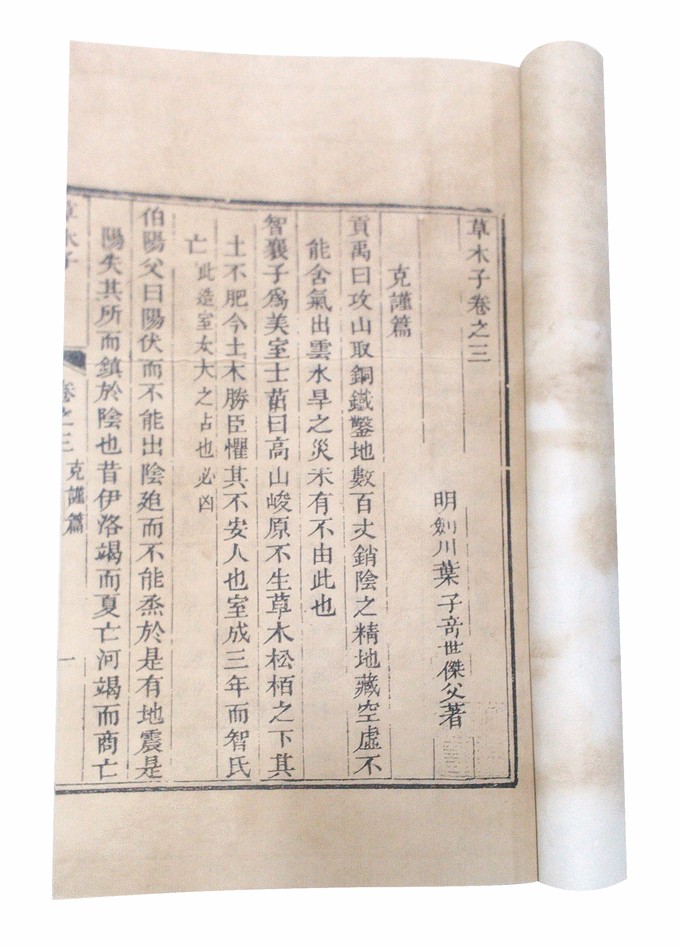 草木子卷之三
明劍川葉子竒世傑父著
克謹篇
貢禹曰攻山取銅鐵鑿地數百丈銷陰之精地藏空虛不
能含氣出雲水旱之災未有不由此也
智襄子為美室士茁曰高山峻原不生草木松栢之下其
土不肥今土木勝臣懼其不安人也室成三年而智氏
亡此造室女大之占也必凶
伯陽父曰陽伏而不能出陰廹而不能烝於是有地震是
陽失其所而鎮於陰也昔伊洛竭而夏亡河竭而商亡
草木子 卷之三 克謹篇 一